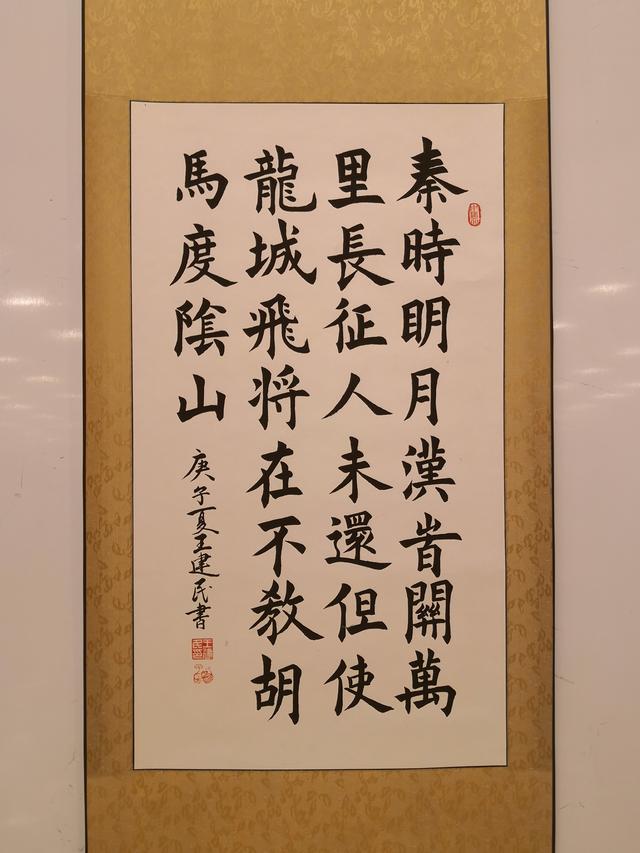 秦時明月漢旹關萬
里長征人未還但使
龍城飛将在不教胡
馬度陰山
庚子夏王建民書